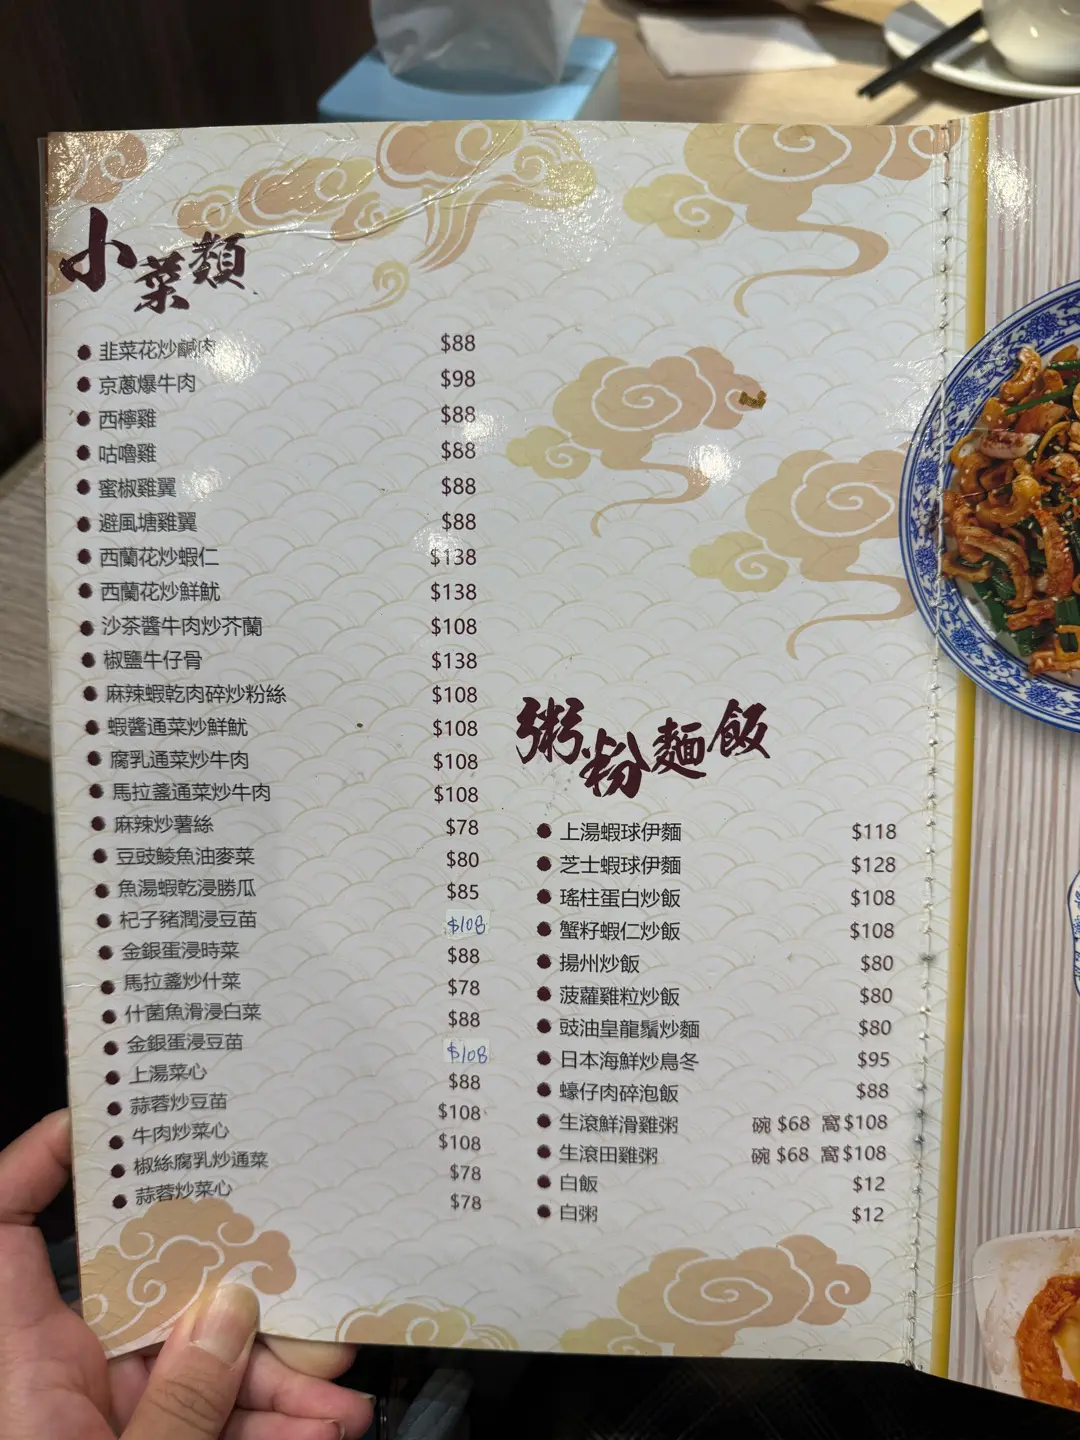 小菜類
韭菜花炒鹹肉 $88
京蔥爆牛肉 $98
西檸雞 $88
咕嚕雞 $88
蜜椒雞翼 $88
避風塘雞翼 $88
西蘭花炒蝦仁 $138
西蘭花炒鮮魷 $138
沙茶醬牛肉炒芥蘭 $108
椒鹽牛仔骨 $138
麻辣蝦乾肉碎炒粉絲 $108
蝦醬通菜炒鮮魷 $108
腐乳通菜炒牛肉 $108
馬拉盞通菜炒牛肉 $108
麻辣炒薯絲 $78
豆豉鯪魚油麥菜 $80
魚湯蝦乾浸勝瓜 $85
杞子豬潤浸豆苗 $108
金銀蛋浸時菜 $88
馬拉盞炒什菜 $78
什菌魚滑浸白菜 $88
金銀蛋浸豆苗 $108
上湯菜心 $88
蒜蓉炒豆苗 $108
牛肉炒菜心 $108
椒絲腐乳炒通菜 $78
蒜蓉炒菜心 $78
粥粉麵飯
上湯蝦球伊麵 $118
芝士蝦球伊麵 $128
瑤柱蛋白炒飯 $108
蟹籽蝦仁炒飯 $108
揚州炒飯 $80
菠蘿雞粒炒飯 $80
豉油皇龍鬚炒麵 $80
日本海鮮炒烏冬 $95
蠔仔肉碎泡飯 $88
生滾鮮滑雞粥 碗 $68 窩 $108
生滾田雞粥 碗 $68 窩 $108
白飯 $12
白粥 $12